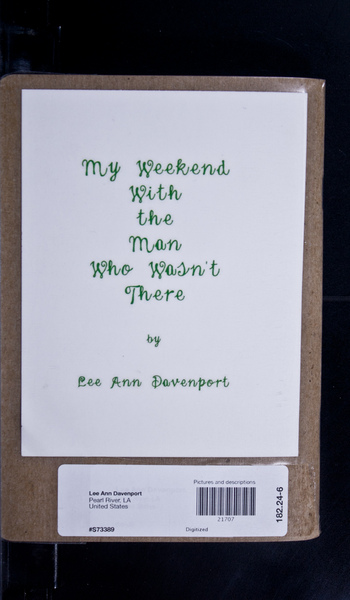 My Weekend
With
the
Man
Who Wasn't
There
by
Lee Ann Davenport
Pictures and descriptions
Lee Ann Davenport
Pearl River, LA
United States
21707
182.24-6
#S73389
Digitized